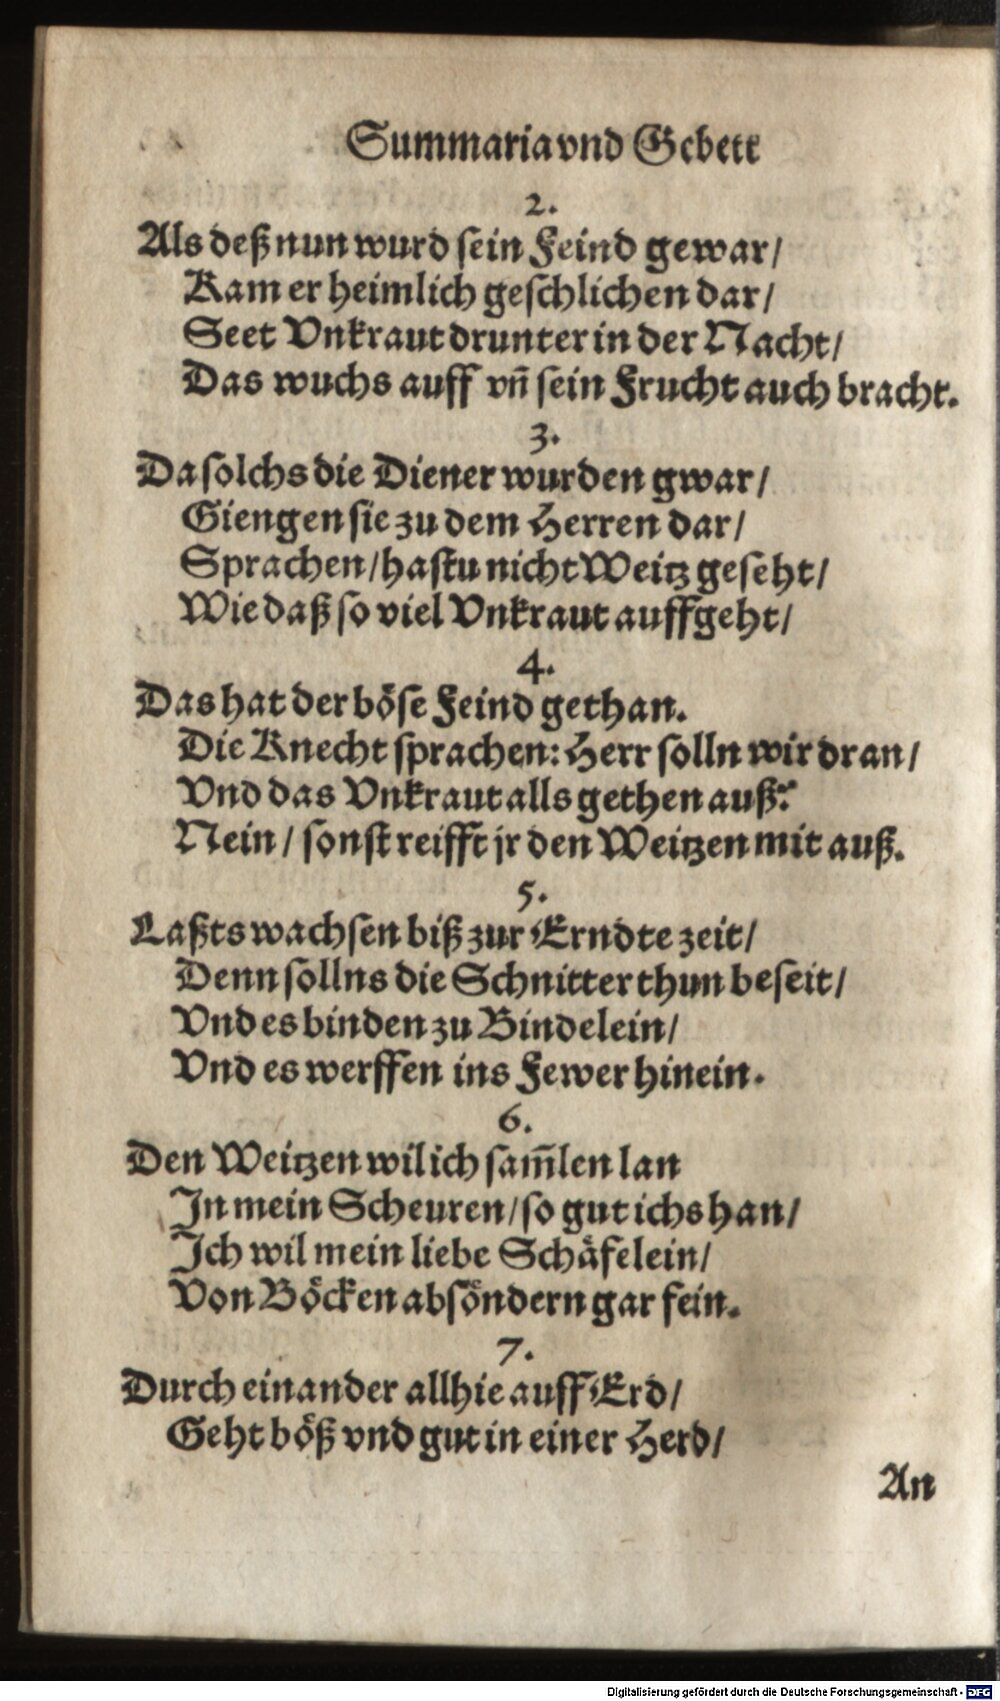 Summaria vnd Gebett
2.
Als deß nun wurd sein Feind gewar/
Kam er heimlich geschlichen dar/
Seet Vnkraut drunter in der Nacht/
Das wuchs auff vñ sein Frucht auch bracht.
3.
Da solchs die Diener wurden gwar/
Giengen sie zu dem Herren dar/
Sprachen/hastu nicht Weitz geseht/
Wie daß so viel Vnkraut auffgeht/
4.
Das hat der böse Feind gethan.
Die Knecht sprachen: Herr solln wir dran/
Vnd das Vnkraut alls gethen auß?
Nein/ sonst reifft jr den Weitzen mit auß.
5.
Laßts wachsen biß zur Erndte zeit/
Denn sollns die Schnitter thun beseit/
Vnd es binden zu Bindelein/
Vnd es werffen ins Fewer hinein.
6.
Den Weitzen wil ich sam̃len lan
In mein Scheuren/so gut ichs han/
Ich wil mein liebe Schäfelein/
Von Böcken absöndern gar fein.
7.
Durch einander allhie auff Erd/
Geht böß vnd gut in einer Herd/
An
Digitalisierung gefördert durch die Deutsche Forschungsgemeinschaft - DFG